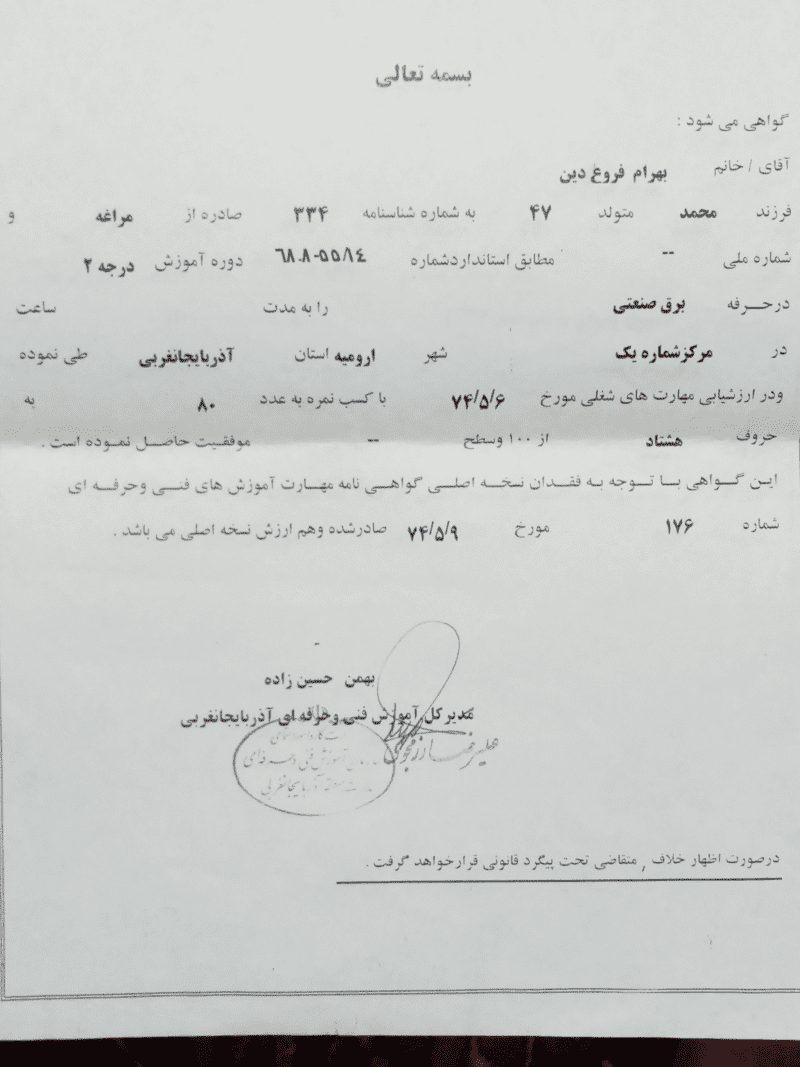 بسمه تعالی
گواهی می شود :
آقای / خانم بهرام فروغ دین
فرزند محمد متولد ۴۷ به شماره شناسنامه ۳۳۴ صادره از مراغه و
شماره ملی -- مطابق استانداردشماره ۶۸.۸-۵۵/۱۴ دوره آموزش درجه ۲
درحرفه برق صنعتی را به مدت ساعت
در مرکزشماره یک شهر ارومیه استان آذربایجانغربی طی نموده
ودر ارزشیابی مهارت های شغلی مورخ ۷۴/۵/۶ با کسب نمره به عدد ۸۰ به
حروف هشتاد از ۱۰۰ وسطح -- موفقیت حاصل نموده است .
این گواهی با توجه به فقدان نسخه اصلی گواهی نامه مهارت آموزش های فنی وحرفه ای
شماره ۱۷۶ مورخ ۷۴/۵/۹ صادرشده وهم ارزش نسخه اصلی می باشد .
بهمن حسین زاده
مدیرکل آموزش فنی وحرفه ای آذربایجانغربی
درصورت اظهار خلاف , متقاضی تحت پیگرد قانونی قرارخواهد گرفت .